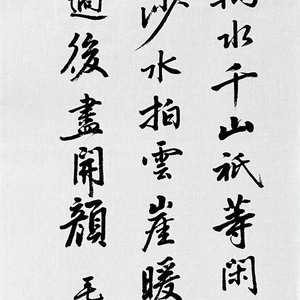 水千山祇等閑
沙水拍雲崖暖
過後盡開顏 毛